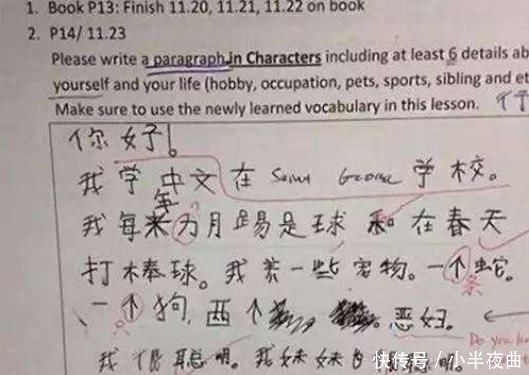 1. Book P13: Finish 11.20, 11.21, 11.22 on book
2. P14/ 11.23
Please write a paragraph in Characters including at least 6 details ab
yourself and your life (hobby, occupation, pets, sports, sibling and et
Make sure to use the newly learned vocabulary in this lesson.
你好!
我学中文在 Saint George 学校。
年
我每来为月踢是球和在春天
打棒球。我养一些宠物。一个蛇。
条
一个狗,西个 恶妞。
Do you
我很聪明。我妹妹也很聪明。
快传号/小半夜曲